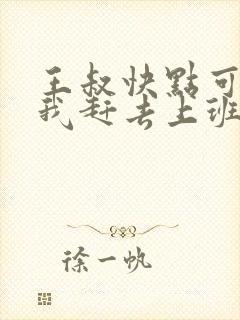 王叔快點可
我赶去上班
徐一帆